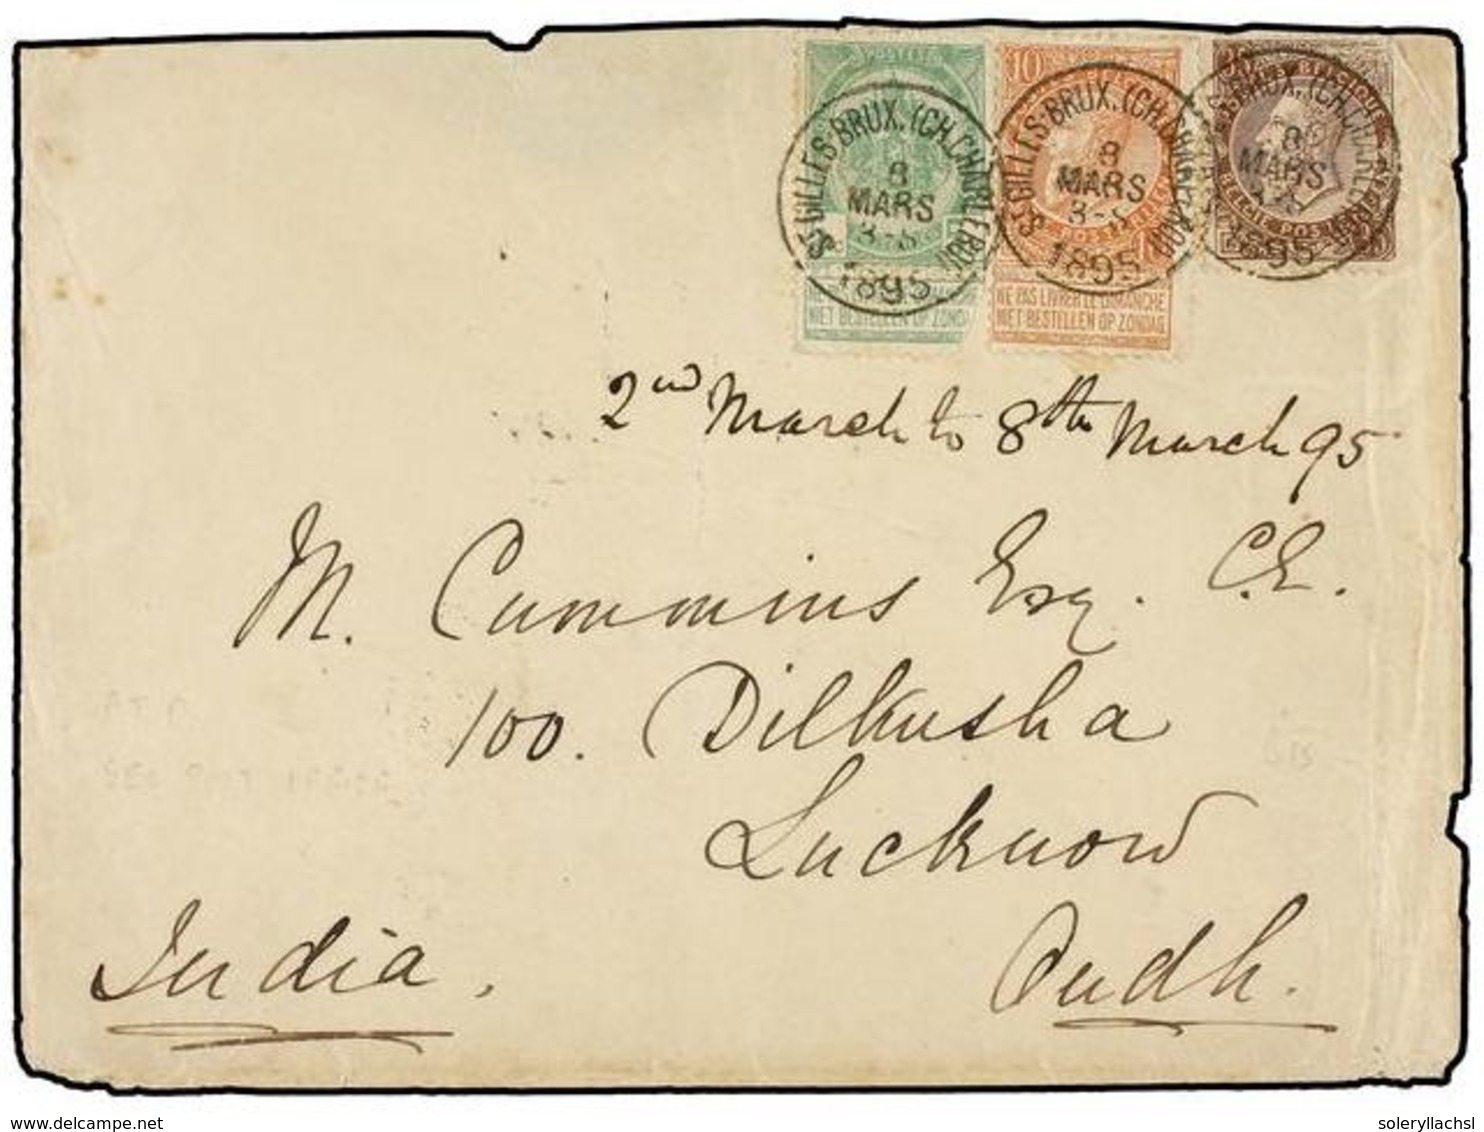 POSTES
10
ST GILLES-BRUX. (CH. CHARLEROI)
8
MARS
1895
ST GILLES-BRUX. (CH. CHARLEROI)
8
MARS
1895
BRUX. (CH. CHARLEROI)
8
MARS
1895
NIET BESTELLEN OP ZONDA
NE PAS LIVRER LE DIMANCHE
NIET BESTELLEN OP ZONDAG
2nd March to 8th March 95
M. Cummins Esq. C.E.
100. Dilkusha
Lucknow
Oudh.
India.
delcampe.net
soleryllachsl